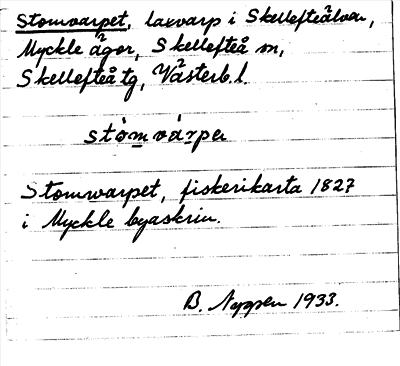 Stomvarpet, laxvarp i Skellefteälven,
Myckle ägor, Skellefteå sn,
Skellefteå tg, Västerb. l.
stòmvárpe
Stomvarpet, fiskerikarta 1827
i Myckle byaskrin.
B. Nyssen 1933.